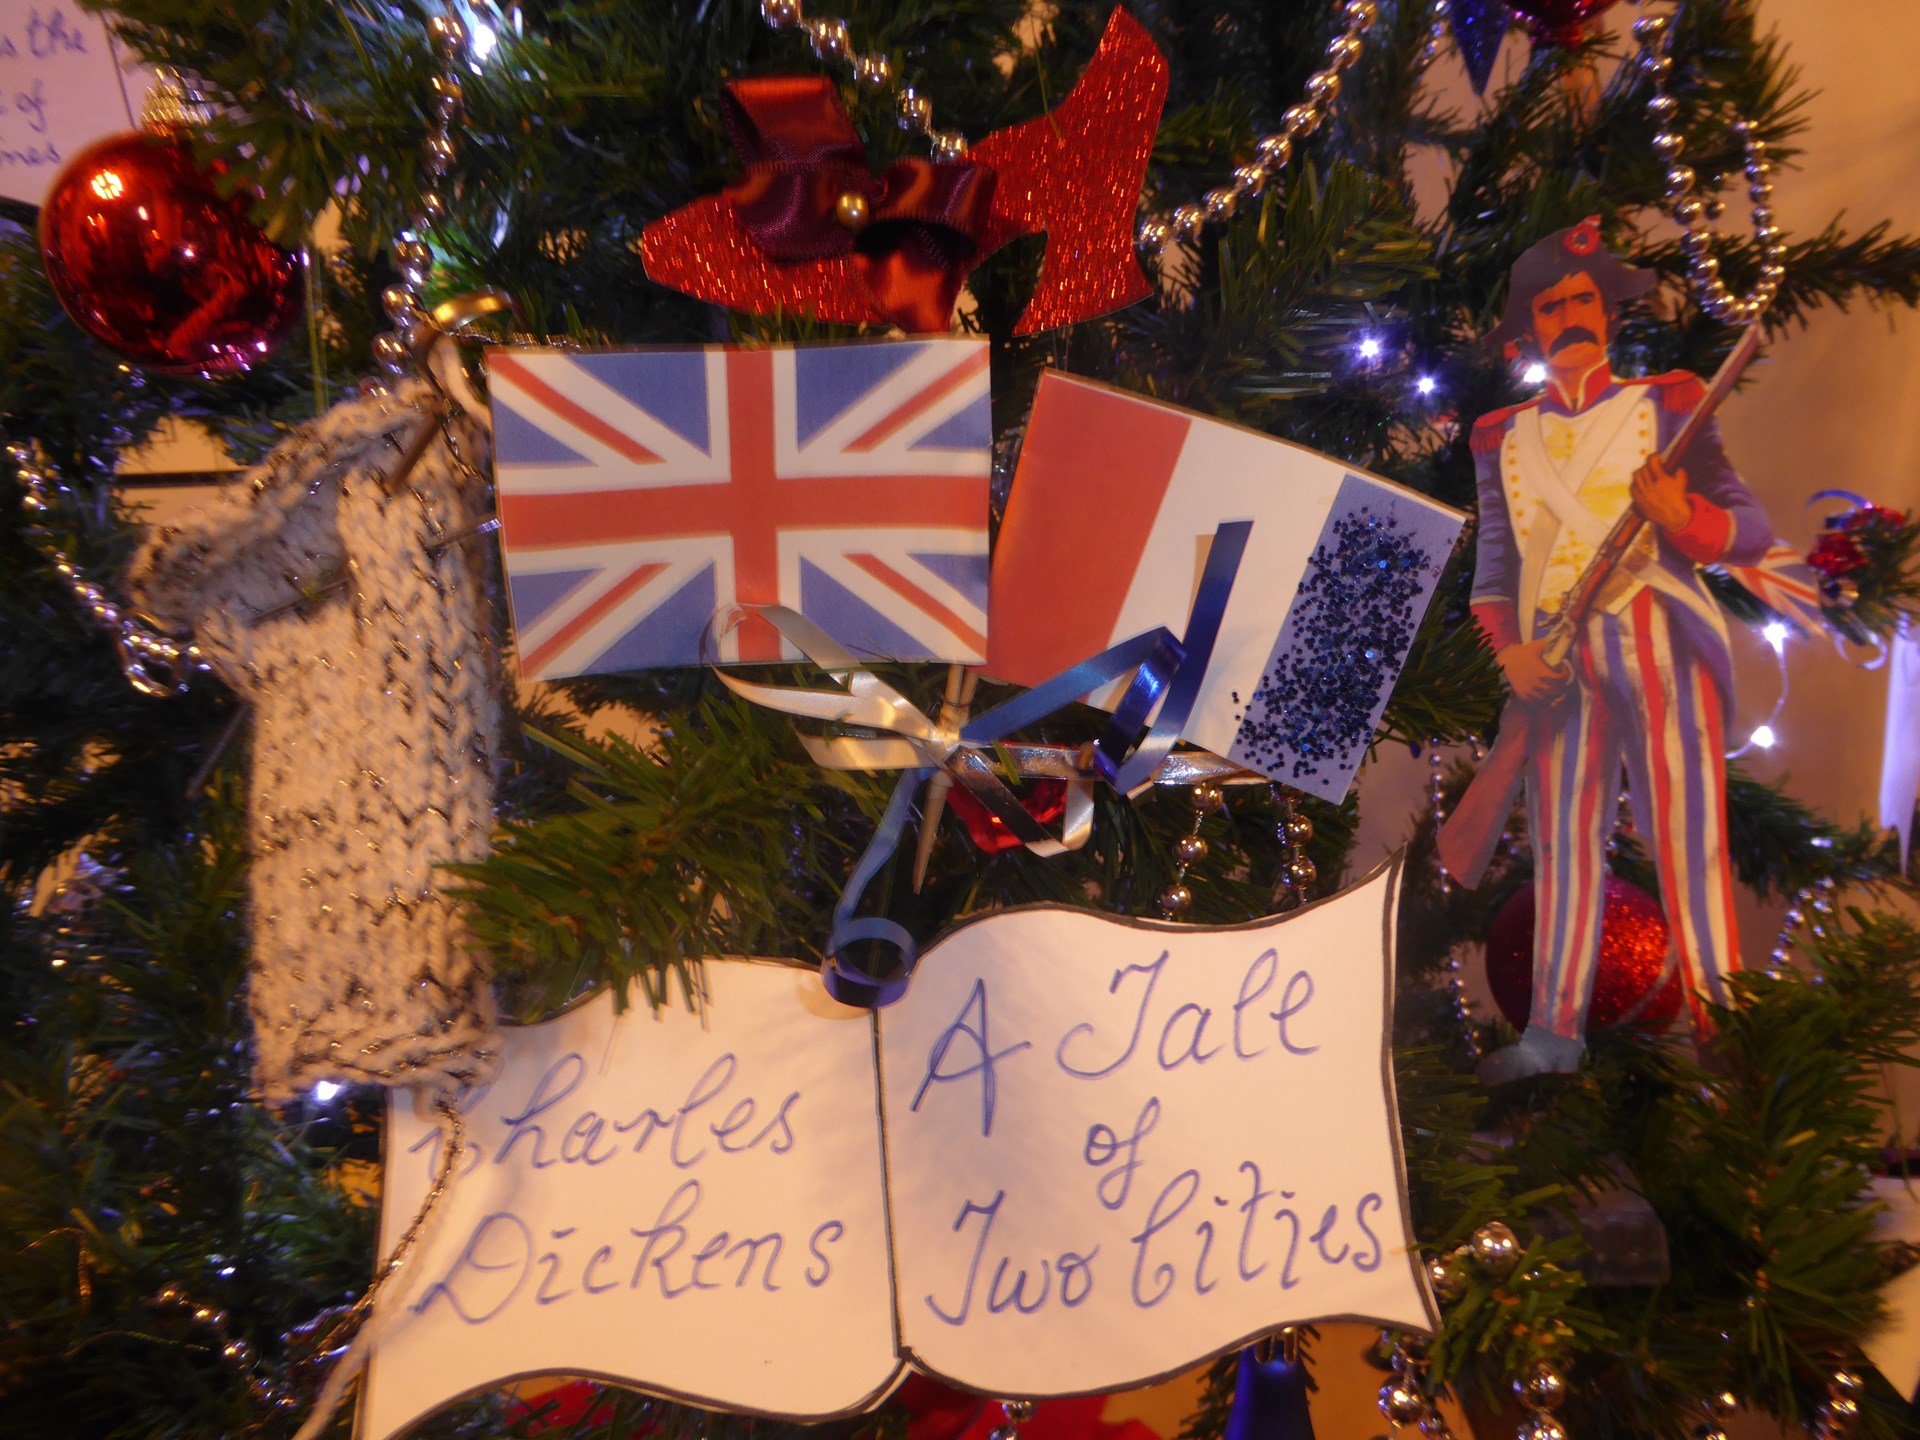 s the
of
mes
Charles
Dickens
A Tale
of
Two Cities